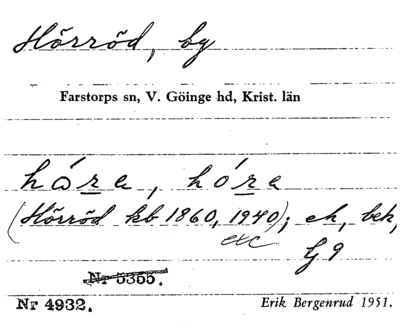 Hörröd, by
Farstorps sn, V. Göinge hd, Krist. län
hára, hóra
(Hörröd kb 1860, 1940); ek, bek,
exc
G 9
Nr 5355.
Nr 4932.
Erik Bergenrud 1951.